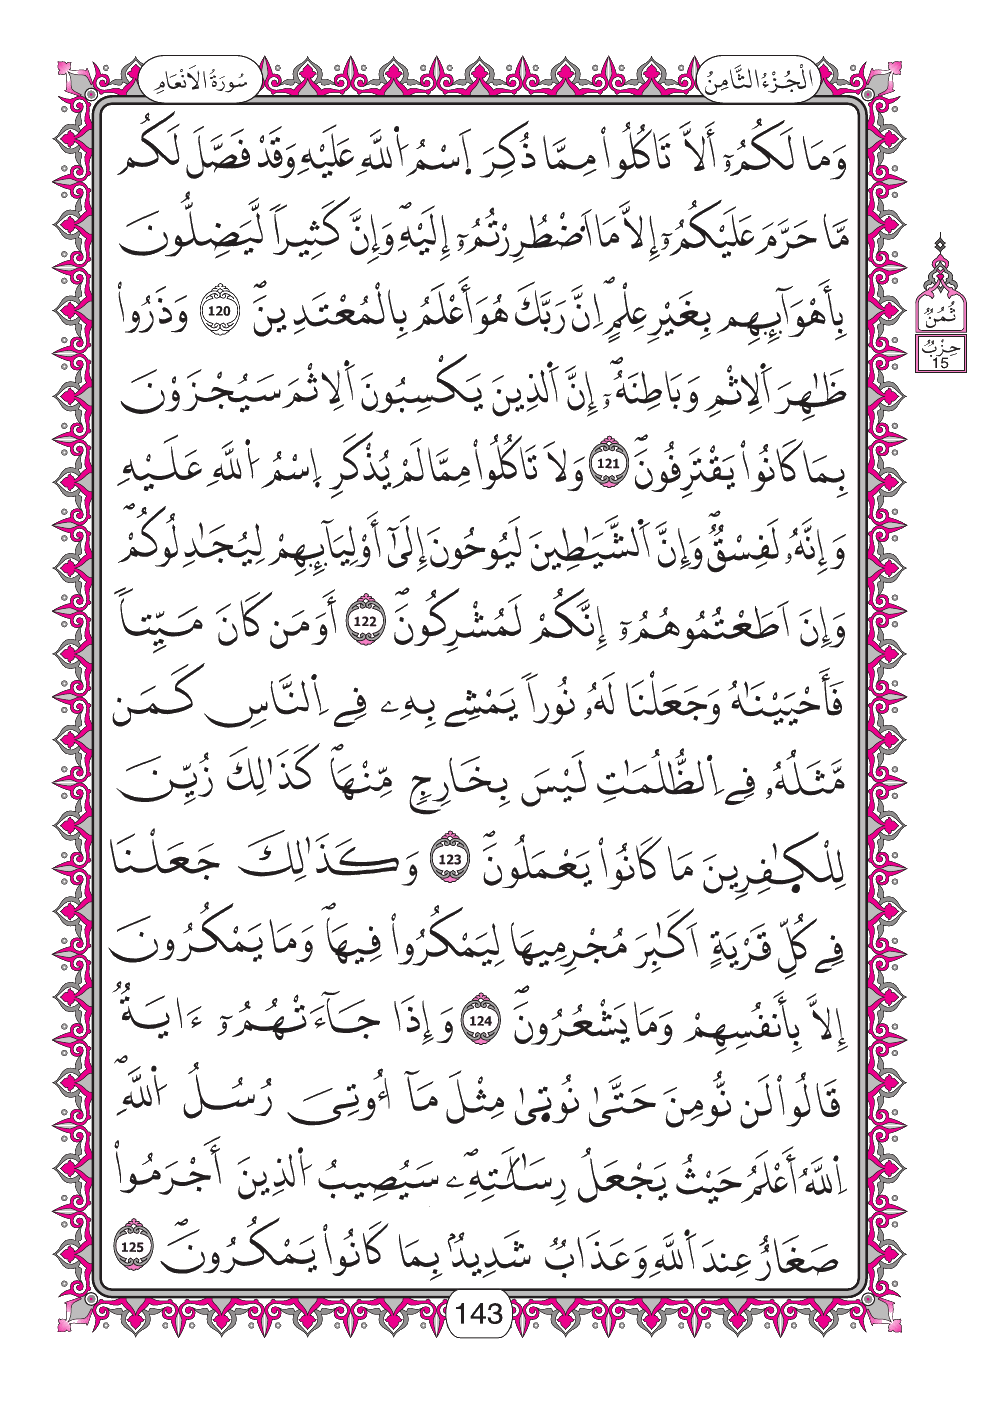 الْجُزْءُ الثَّامِنُ
سُورَةُ الَانْعَامِ
وَمَا لَكُمُۥٓ أَلَّا تَاكُلُواْ مِمَّا ذُكِرَ اَ۪سْمُ اُ۬للَّهِ عَلَيْهِ وَقَدْ فَصَّلَ لَكُم
مَّا حَرَّمَ عَلَيْكُمُۥٓ إِلَّا مَا اَ۟ضْطُرِرْتُمُۥٓ إِلَيْهِۖ وَإِنَّ كَثِيراٗ لَّيَضِلُّونَ
بِأَهْوَآئِهِم بِغَيْرِ عِلْمٍۖ اِنَّ رَبَّكَ هُوَ أَعْلَمُ بِالْمُعْتَدِينَۖ 120 وَذَرُواْ
ظَٰهِرَ اَ۬لِاثْمِ وَبَاطِنَهُۥٓۖ إِنَّ اَ۬لذِينَ يَكْسِبُونَ اَ۬لِاثْمَ سَيُجْزَوْنَ
بِمَا كَانُواْ يَقْتَرِفُونَۖ 121 وَلَا تَاكُلُواْ مِمَّا لَمْ يُذْكَرِ اِ۪سْمُ اُ۬للَّهِ عَلَيْهِ
وَإِنَّهُۥ لَفِسْقٞۖ وَإِنَّ اَ۬لشَّيَٰطِينَ لَيُوحُونَ إِلَىٰٓ أَوْلِيَآئِهِمْ لِيُجَٰدِلُوكُمْۖ
وَإِنَ اَطَعْتُمُوهُمُۥٓ إِنَّكُمْ لَمُشْرِكُونَۖ 122 أَوَمَن كَانَ مَيِّتاٗ
فَأَحْيَيْنَٰهُ وَجَعَلْنَا لَهُۥ نُوراٗ يَمْشِے بِهِۦ فِے اِ۬لنَّاسِ كَمَن
مَّثَلُهُۥ فِے اِ۬لظُّلُمَٰتِ لَيْسَ بِخَارِجٖ مِّنْهَاۖ كَذَٰلِكَ زُيِّنَ
لِلْكٰ۪فِرِينَ مَا كَانُواْ يَعْمَلُونَۖ 123 وَكَذَٰلِكَ جَعَلْنَا
فِے كُلِّ قَرْيَةٍ اَكَٰبِرَ مُجْرِمِيهَا لِيَمْكُرُواْ فِيهَاۖ وَمَا يَمْكُرُونَ
إِلَّا بِأَنفُسِهِمْ وَمَا يَشْعُرُونَۖ 124 وَإِذَا جَآءَتْهُمُۥٓ ءَايَةٞ
قَالُواْ لَن نُّومِنَ حَتَّىٰ نُوت۪ىٰ مِثْلَ مَآ أُوتِيَ رُسُلُ اُ۬للَّهِۖ
اِ۬للَّهُ أَعْلَمُ حَيْثُ يَجْعَلُ رِسَٰلَٰتِهِۦۖ سَيُصِيبُ اُ۬لذِينَ أَجْرَمُواْ
صَغَارٌ عِندَ اَ۬للَّهِ وَعَذَابٞ شَدِيدُۢ بِمَا كَانُواْ يَمْكُرُونَۖ 125
ثُمُنُ
حِزْبُ
15
143